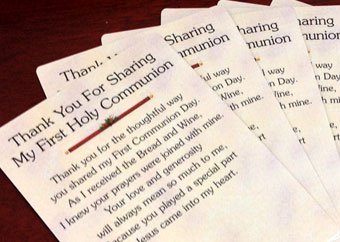 Thank You For Sharing
My First Holy Communion
Thank you for the thoughtful way
you shared my First Communion Day.
As I received the Bread and Wine,
I knew your prayers were joined with mine.
Your love and generosity
will always mean so much to me,
because you played a special part
Jesus came into my heart.
Thank
Sharing
mmunion
way
n Day.
Wine,
h mine.
Sharing
munion
way
n Day.
ine,
mine.
haring
union
way
Day.
ne,
mine.
haring
union